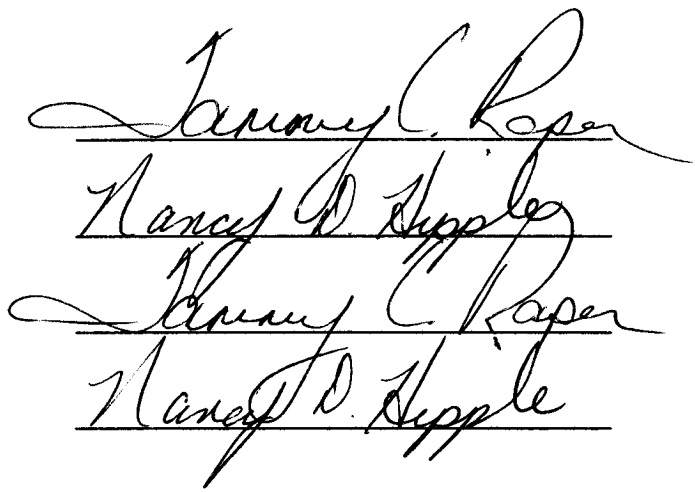 Tammy C. Raper
Nancy D. Hipple
Tammy C. Raper
Nancy D. Hipple